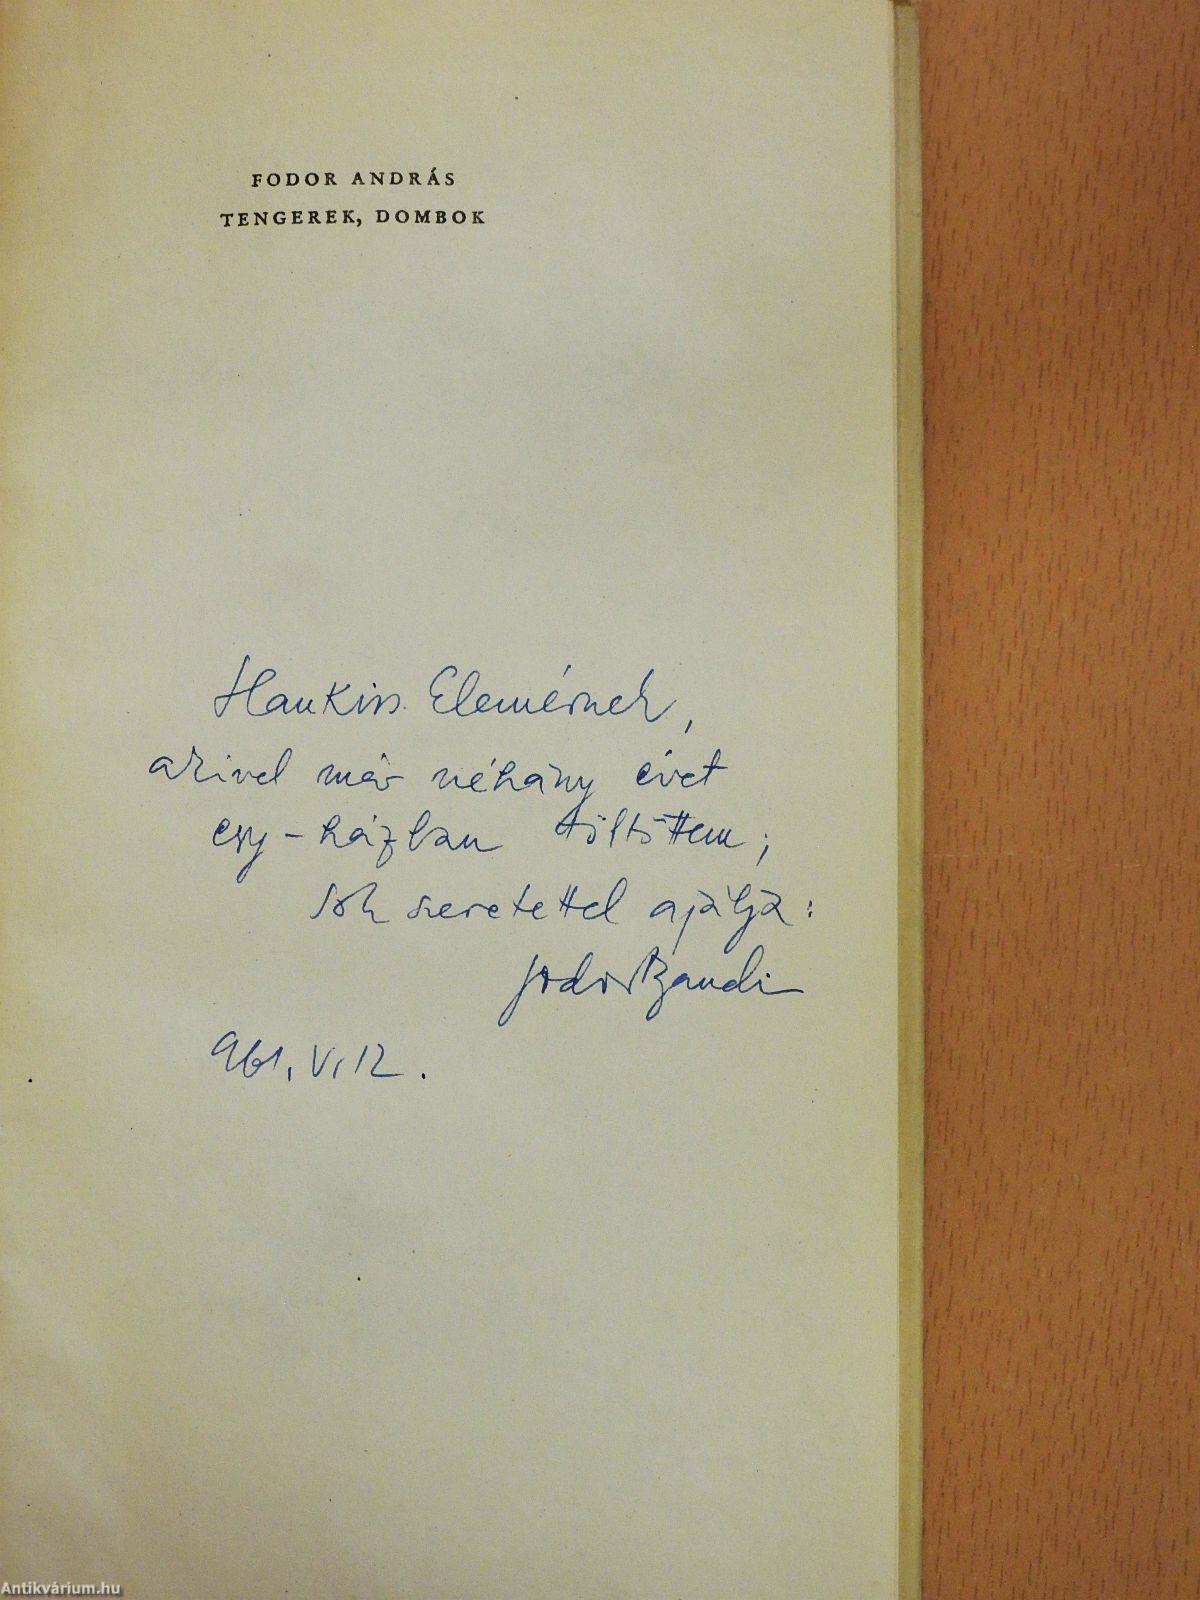 FODOR ANDRÁS
TENGEREK, DOMBOK
Hankiss Elemérnek,
akivel már néhány évet
egy-házban töltöttem;
sok szeretettel ajálja:
Fodor Bandi
961. V. 12.
Antikvárium.hu